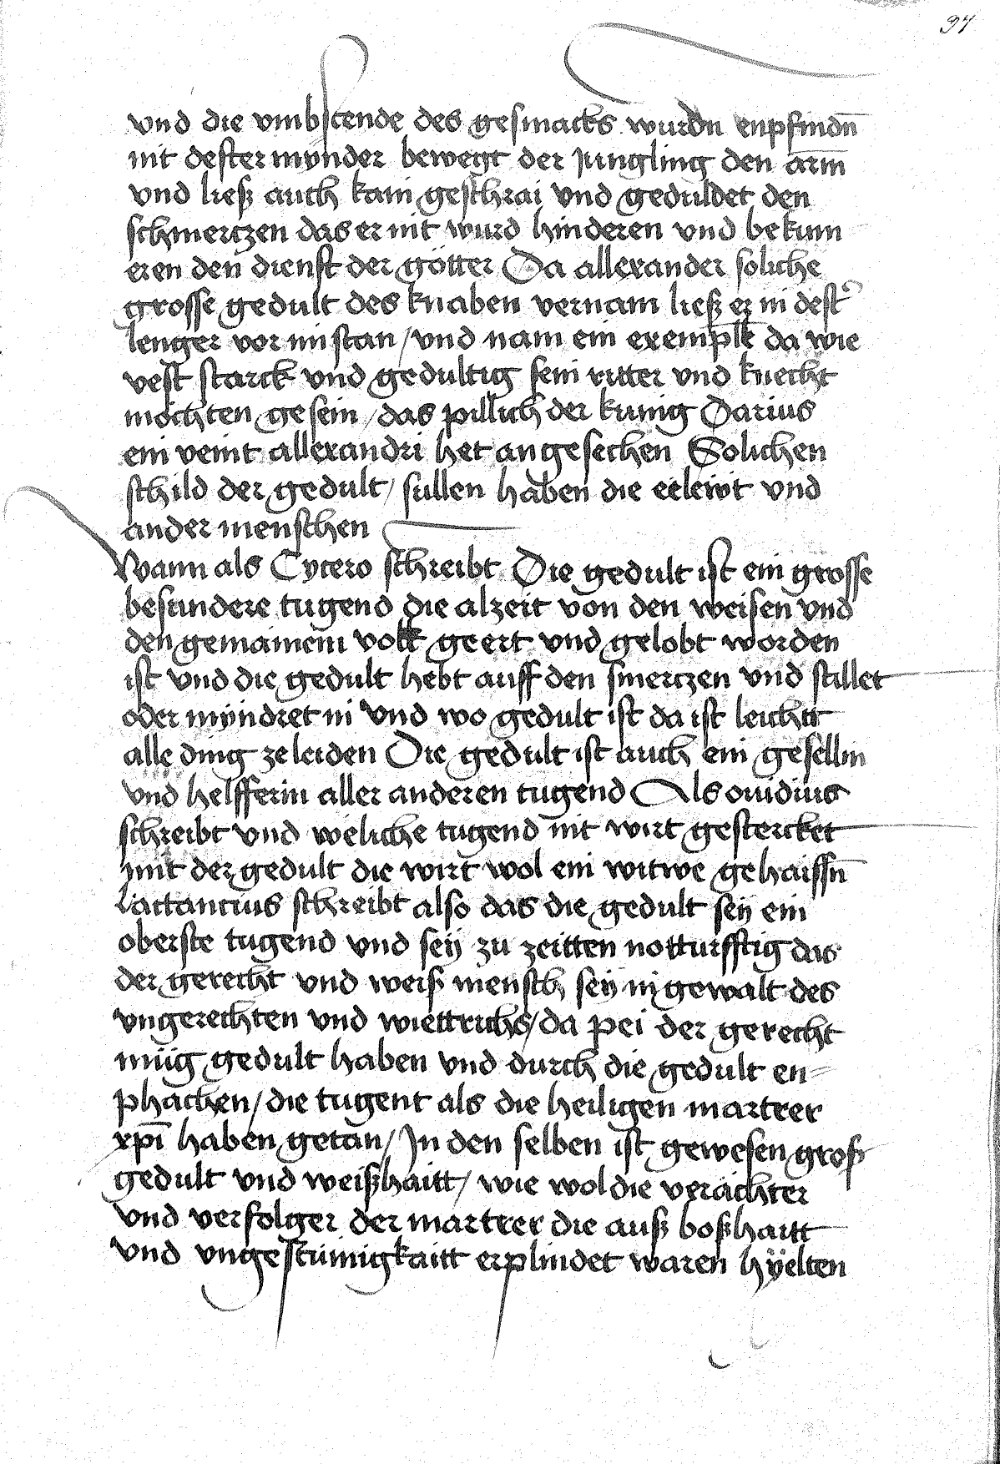 97
vnd die vmbstende des gesmacks wurdn enpfindn̄
nit dester mynder bewegt der jungling den arm̄
vnd liesz auch kain geschrai vnd geduldet den
schmertzen das er nit wurd hinderen vnd bekum
eren den dienst der götter Da allexander soliche
grosse gedult des knaben vernam liesz er in dest᾽
lenger vor im stan / vnd nam ein exempl̄ da wie
vest starck vnd gedultig sein ritter vnd knecht
mochten gesein / das pillich der kunig Darius
ein veint allexandri het angesechen Solichen
schild der gedult / sullen haben die eelewt vnd
ander menschen
Wann als Cycero schreibt Die gedult ist ein grosse
besundere tugend die alzeit von den weisen vnd
den gemainem volk geert vnd gelobt worden
ist vnd die gedult hebt auff den smertzen vnd stillet
oder myndret in Vnd wo gedult ist da ist leicht
alle ding ze leiden Die gedult ist auch ein gesellin
vnd helfferin aller anderen tugend Als ouidius
schreibt vnd weliche tugend nit wirt gestercket
mit der gedult die wirt wol ein witwe gehaissn̄
Lactancius schreibt also das die gedult seÿ ein
oberste tugend vnd seÿ zu zeitten notturfftig das
der gerecht vnd weiß mensch seÿ in gewalt des
vngerechten vnd wiettrichs / da pei der gerecht
müg gedult haben vnd durch die gedult en=
phachen / die tugent als die heiligen martrer
xpī haben getan / In den selben ist gewesen groß
gedult vnd weißhaitt / wie wol die verachter
vnd verfolger der martrer die auß boßhaitt
vnd vngestümigkaitt erplindet waren hÿelten